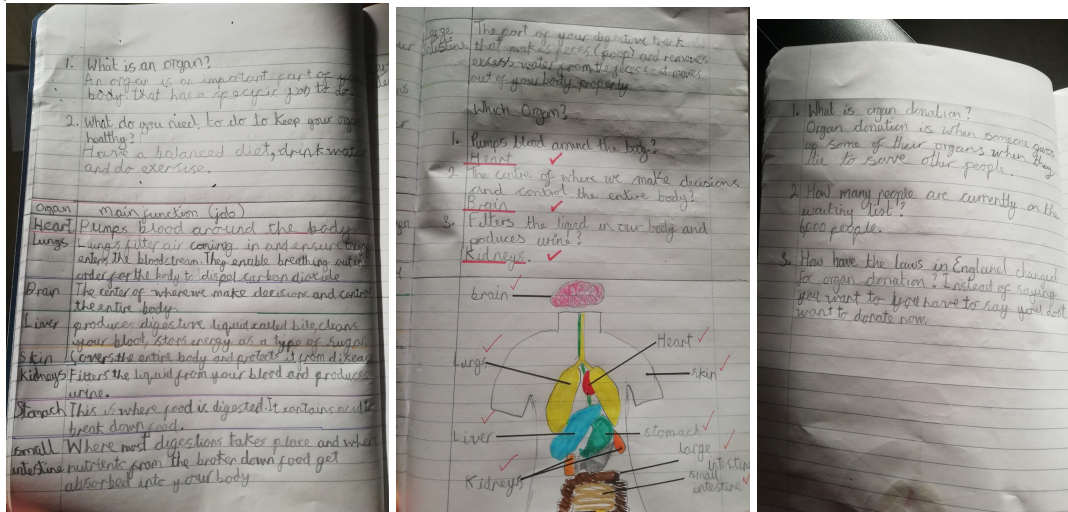 1. What is an organ?
An organ is an important part of
body that has a specific job to do.
2. What do you need, to do to keep your
healthy?
Have a balanced diet, drink water
and do exercise.
Organ main function (job)
Heart Pumps blood around the body
Lungs Lungs filter air coming in and ensure
enters the bloodstream. They enable breathing out in
order for the body to dispol carbon dioxide
Brain The center of where we make decisions and control
the entire body.
Liver produces digestive liquid called bile, cleans
your blood, stors energy as a type of sugar.
Skin Covers the entire body and protects it from
Kidneys Filters the liquid from your blood and produces
urine.
Stomach This is where food is digested. It contains acid to
break down food.
small Where most digestions takes place and
intestine nutrients from the broken down food get
absorbed into your body
Large The part of your digestive
intestine that makes feces (poop) and removes
excess water from the feces
out of your body properly
Which Organ?
1. Pumps blood around the body?
Heart
2 The centre of where we make decisions
and control the entire body?
Brain
3. Filters the liquid in our body and
produces urine?
Kidneys.
brain
Heart
Lungs
skin
Liver
stomach
large
intestine
Kidneys
small
intestine
1. What is organ donation?
Organ donation is when someone gives
up some of their organs when they
die to save other people.
2 How many people are currently on the
waiting list?
6000 people.
3. How have the laws in England changed
for organ donation? Instead of saying
you want to you have to say you don't
want to donate now.